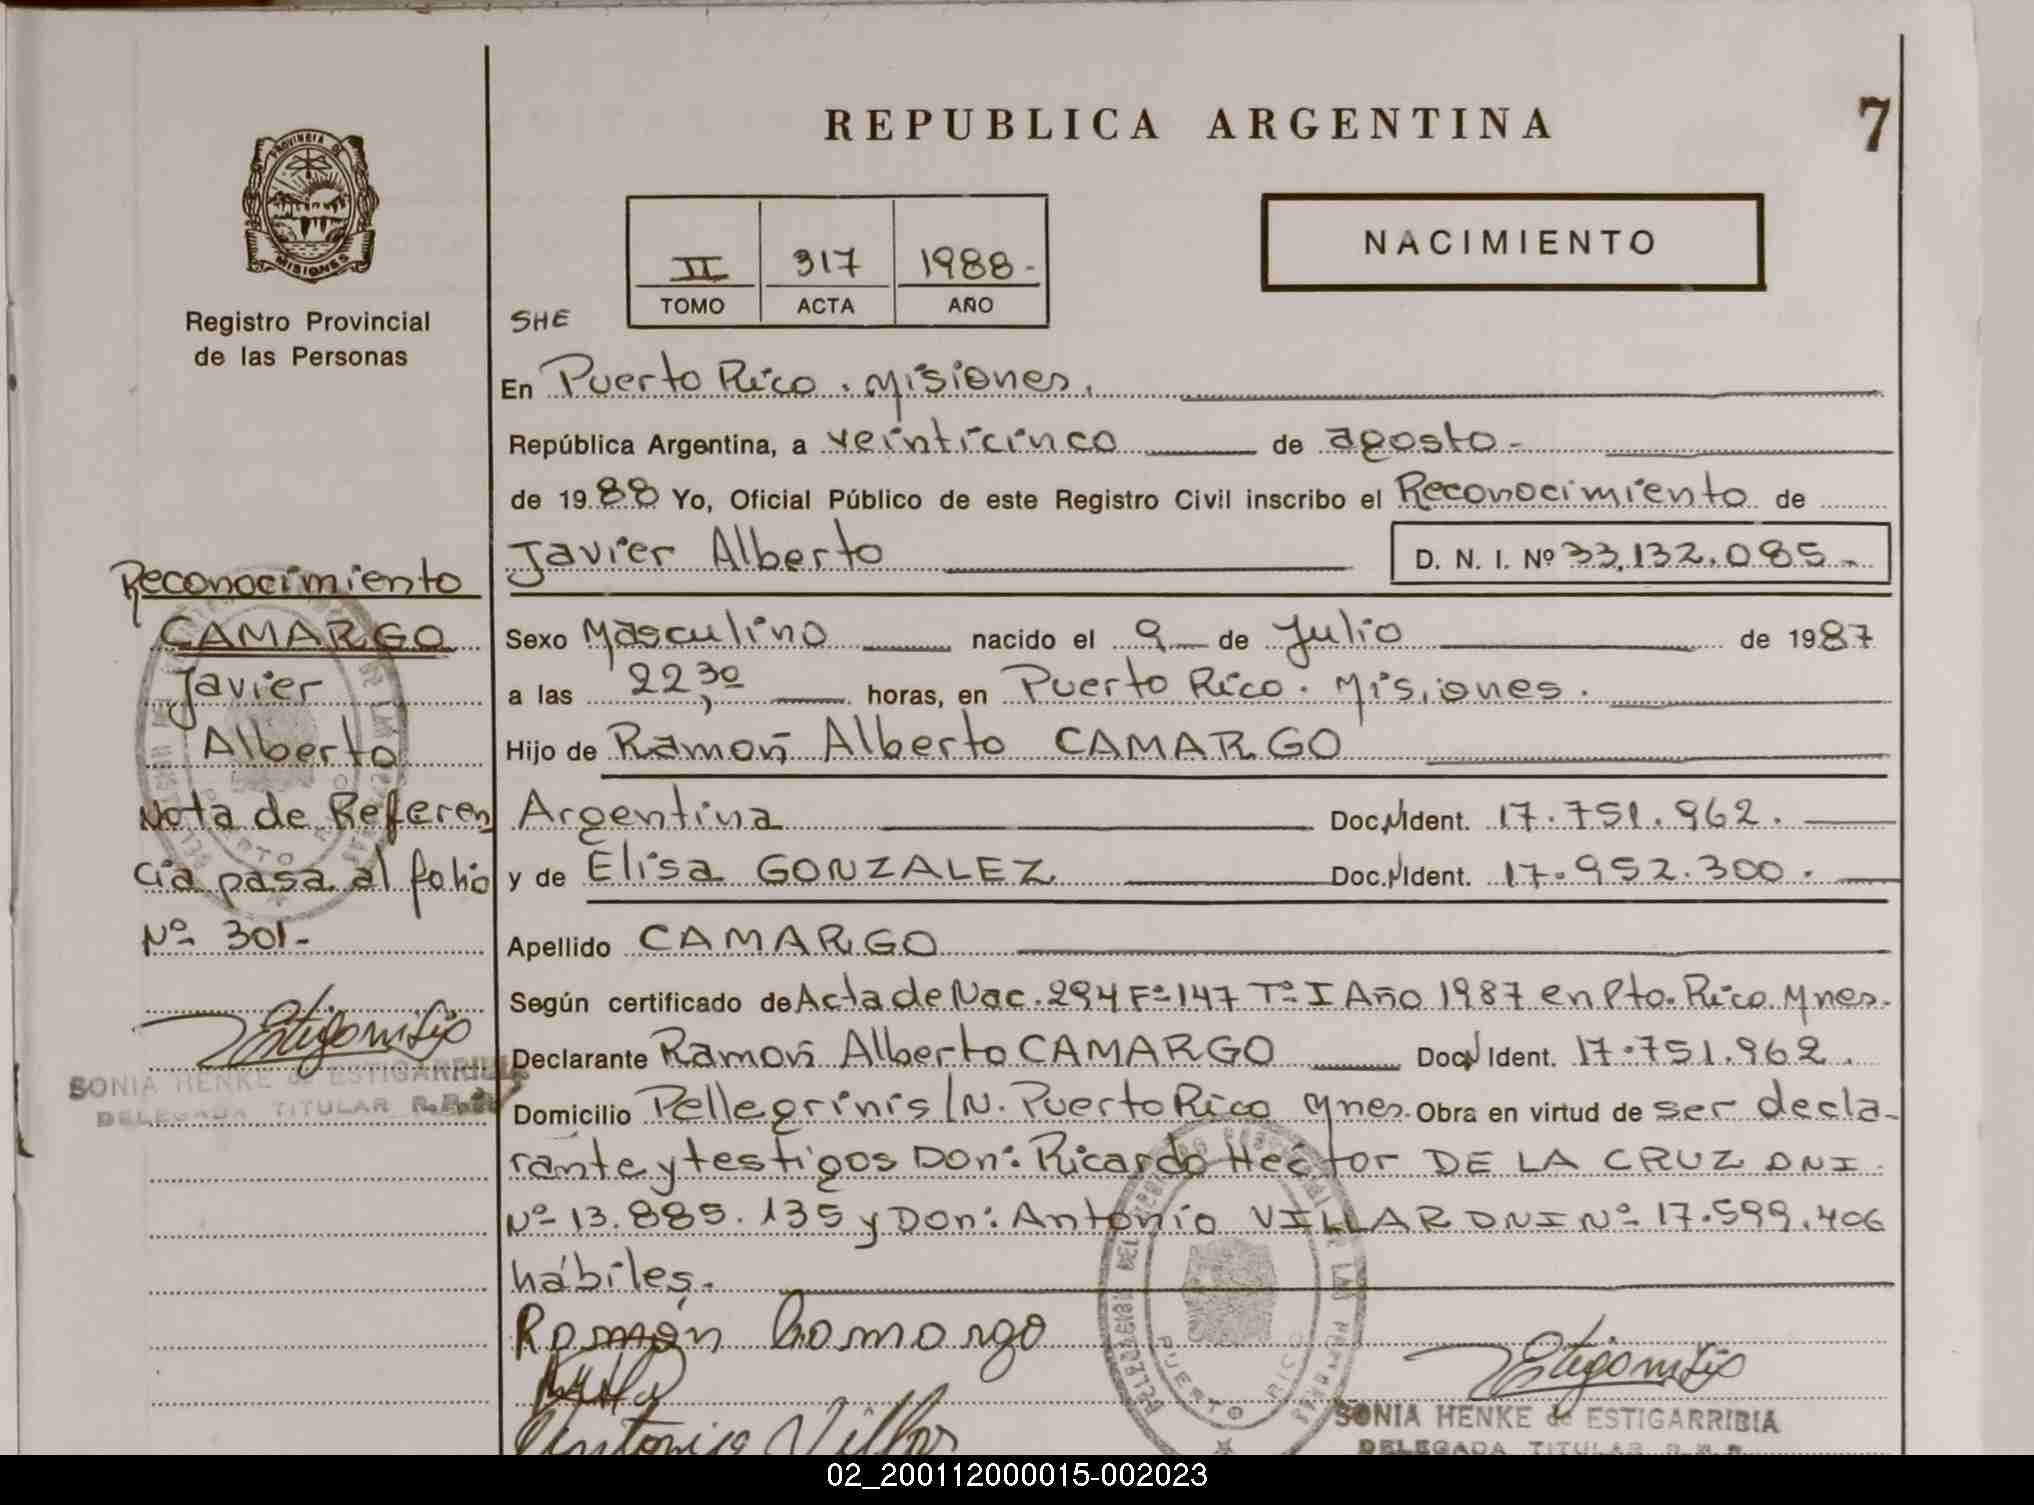 REPUBLICA ARGENTINA
7
PROVINCIA DE
MISIONES
Registro Provincial
de las Personas
II 317 1988-
TOMO ACTA AÑO
NACIMIENTO
SHE
En Puerto Rico. Misiones.
República Argentina, a veinticinco de agosto-
de 1988 Yo, Oficial Público de este Registro Civil inscribo el Reconocimiento de
Javier Alberto D. N. I. Nº 33.132.085-
Sexo Masculino nacido el 9 de Julio de 1987
a las 22,30 horas, en Puerto Rico. Misiones.
Hijo de Ramón Alberto CAMARGO
Argentina Doc. N Ident. 17.751.962.
y de Elisa GONZALEZ Doc. N Ident. 17.952.300.
Apellido CAMARGO
Según certificado de Acta de Nac. 294 Fº 147 Tº I Año 1987 en Pto. Rico. Mnes.
Declarante Ramón Alberto CAMARGO Doc. N Ident. 17.751.962.
Domicilio Pellegrini S/N. Puerto Rico Mnes. Obra en virtud de ser decla-
rante y testigos Don: Ricardo Héctor DE LA CRUZ DNI
Nº 13.885.135 y Don: Antonio VILLAR DNI Nº 17.599.406
hábiles.
Reconocimiento
CAMARGO
Javier
Alberto
Nota de Referen
cia pasa al folio
Nº 301-
SONIA HENKE de ESTIGARRIBIA
DELEGADA TITULAR R.P.P.
Ramón Camargo
Antonio Villar
PUERTO RICO
SONIA HENKE de ESTIGARRIBIA
DELEGADA TITULAR R.P.P.
02_200112000015-002023